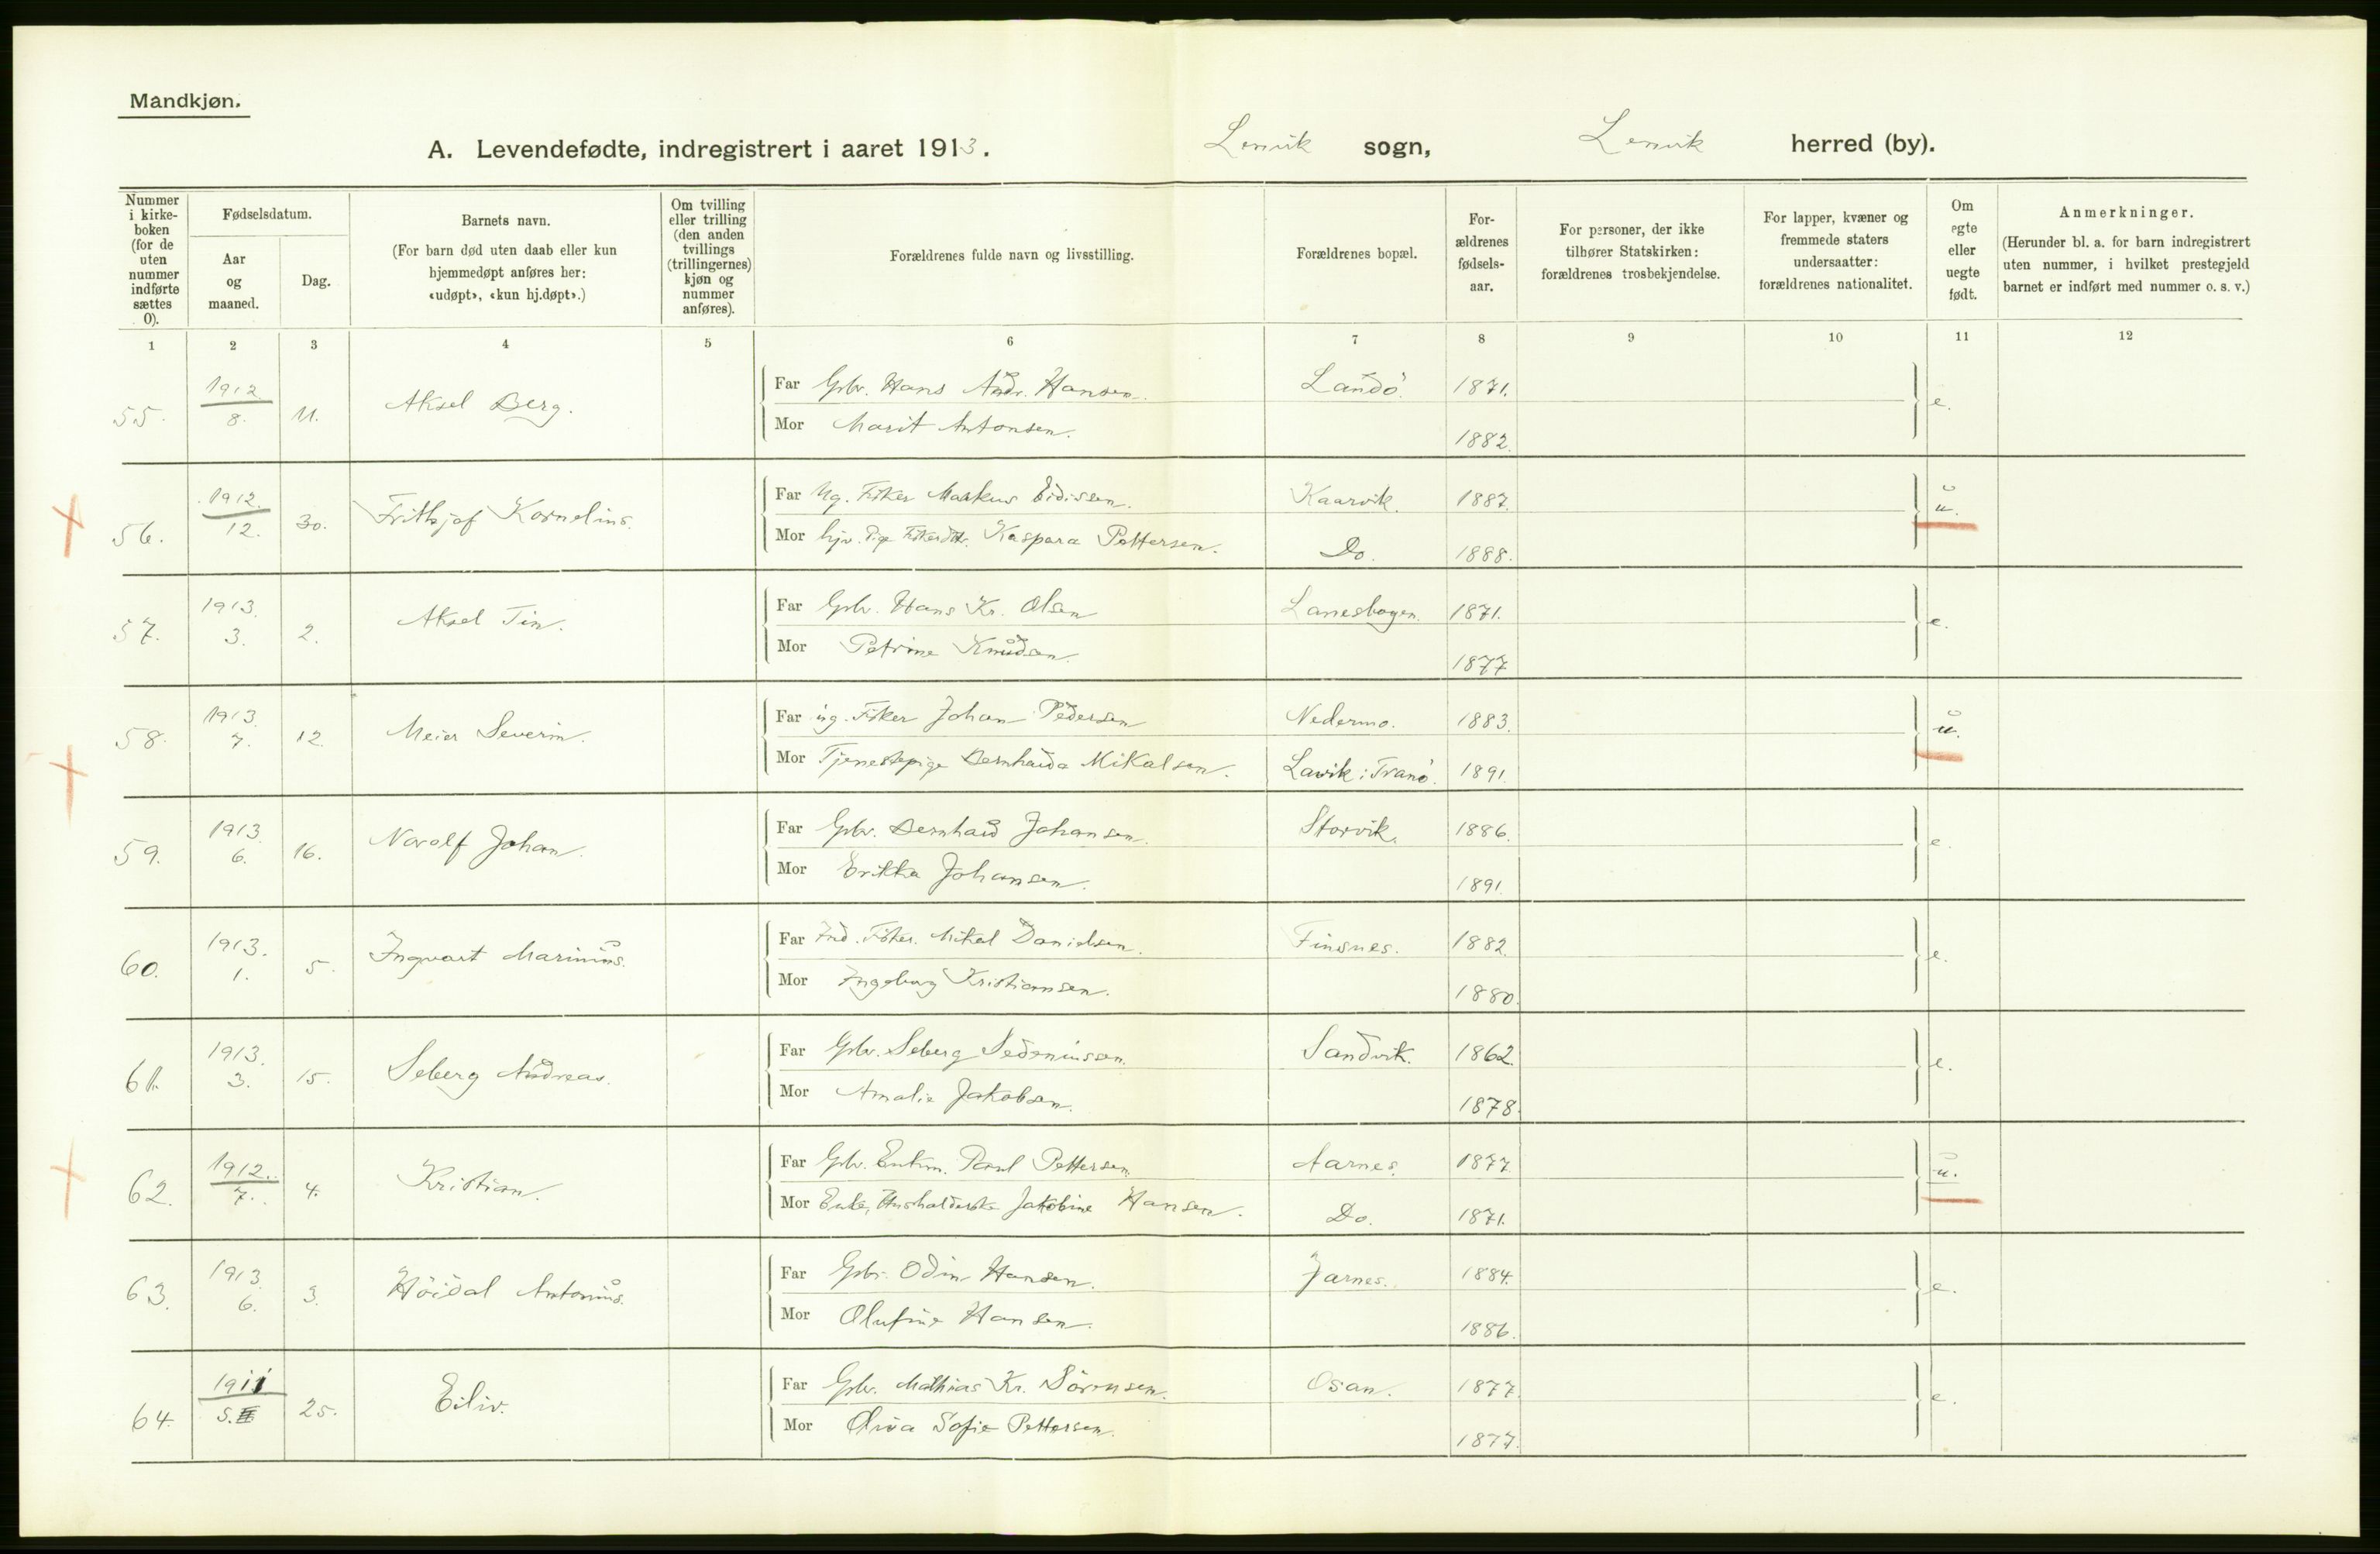 Mandkjøn.
A. Levendefødte, indregistrert i aaret 1913. Lenvik sogn, Lenvik herred (by).
Nummer i kirke-boken (for de uten nummer indførte sættes 0).
Fødselsdatum.
Aar og maaned.
Dag.
Barnets navn.
(For barn død uten daab eller kun hjemmedøpt anføres her: «udøpt», «kun hj.døpt».)
Om tvilling eller trilling (den anden tvillings (trillingernes) kjøn og nummer anføres).
Forældrenes fulde navn og livsstilling.
Forældrenes bopæl.
For-ældrenes fødsels-aar.
For personer, der ikke tilhører Statskirken: forældrenes trosbekjendelse.
For lapper, kvæner og fremmede staters undersaatter: forældrenes nationalitet.
Om egte eller uegte født.
Anmerkninger.
(Herunder bl. a. for barn indregistrert uten nummer, i hvilket prestegjeld barnet er indført med nummer o. s. v.)
1 2 3 4 5 6 7 8 9 10 11 12
55. 1912 8. 11. Aksel Berg. Far Gbr. Hans Andr. Hansen. Landö. 1871. e.
Mor Marit Antonsen. 1882.
56. 1912. 12. 30. Frithjof Kornelius. Far Ug. Fisker Markus Eidissen. Kaarvik. 1887. u.
Mor hjv. Pige Fiskerdtr. Kaspara Pettersen. Do. 1888.
57. 1913. 3. 2. Aksel Tin. Far Gbr. Hans Kr. Olsen Lanesbogen. 1871. e.
Mor Petrine Knudsen. 1877
58. 1913. 7. 12. Meier Severin. Far ug. Fisker Johan Pedersen Nedermo. 1883. u.
Mor Tjenestepige Bernharda Mikalsen. Lavik i Tranö. 1891.
59. 1913. 6. 16. Norolf Johan. Far Gbr. Bernhard Johansen. Storvik. 1886. e.
Mor Erikka Johansen. 1891.
60. 1913. 1. 5. Ingvart Marinius. Far Ind. Fisker. Mikal Danielsen. Finsnes. 1882. e.
Mor Ingeborg Kristiansen. 1880.
61. 1913. 3. 15. Seberg Andreas. Far Gbr. Seberg Sedeniussen. Sandvik. 1862. e.
Mor Amalie Jakobsen. 1878.
62. 1912. 7. 4. Kristian. Far Gbr. Enkem. Paul Pettersen. Aarnes. 1877. u.
Mor Enke, Husholderske Jakobine Hansen. Do. 1871.
63. 1913. 6. 3. Höidal Antonius. Far Gbr. Odin Hansen. Jarnes. 1884. e.
Mor Olufine Hansen. 1886.
64. 1911 5. 25. Eiliv. Far Gbr. Mathias Kr. Sörensen. Osan. 1877. e.
Mor Oliva Sofie Pettersen. 1877.